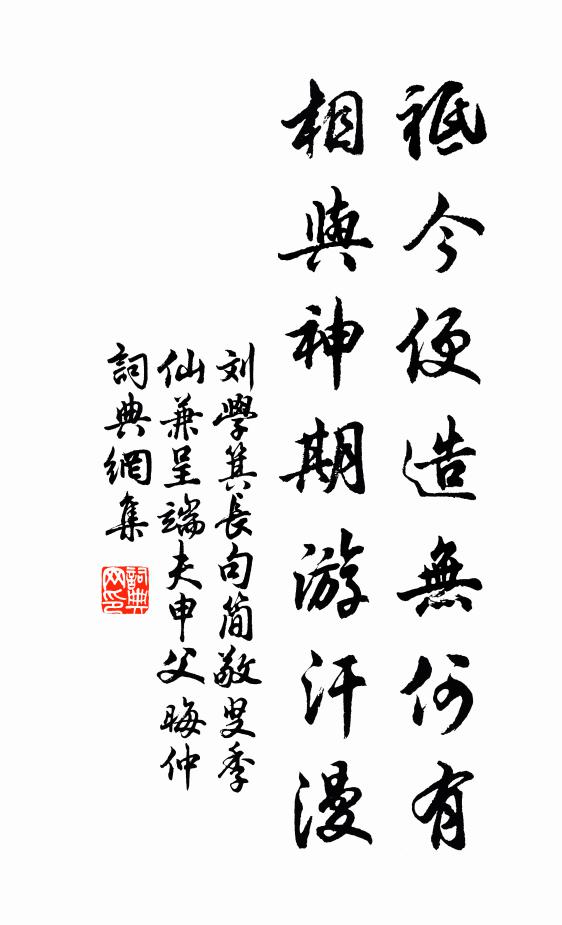 祗今便造無何有
相與神期游汗漫
刘學箕長句简敬叟季
仙兼呈端夫申父晦仲
詞典網集
詞典網印